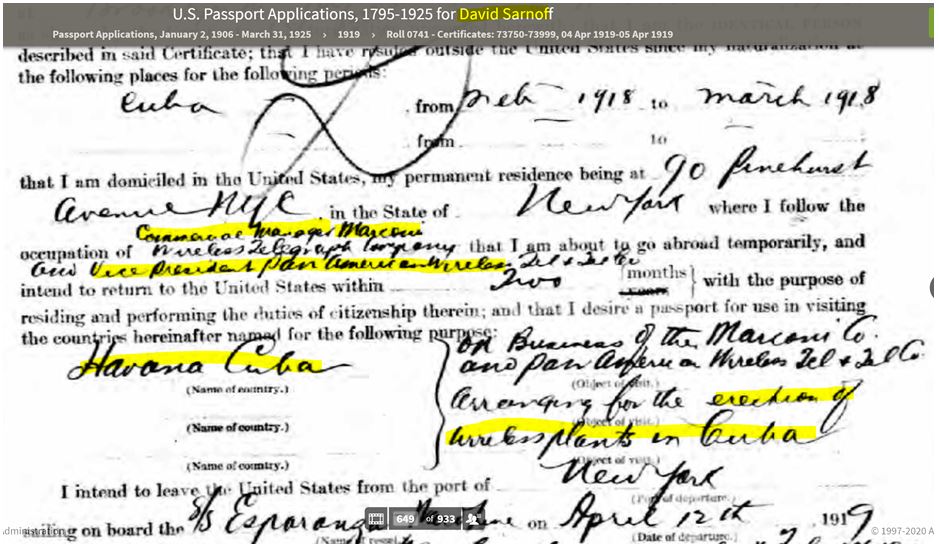 U.S. Passport Applications, 1795-1925 for David Sarnoff
Passport Applications, January 2, 1906 - March 31, 1925 › 1919 › Roll 0741 - Certificates: 73750-73999, 04 Apr 1919-05 Apr 1919
described in said Certificate; that I have resided outside the United States since my naturalization at
the following places for the following periods:
Cuba , from Feb 1918 to march 1918
from to
that I am domiciled in the United States, my permanent residence being at 90 Pinehurst
Avenue NYC , in the State of New York where I follow the
Commercial Manager Marconi
occupation of Wireless Telegraph Company that I am about to go abroad temporarily, and
and Vice President Pan American Wireless Tel & Tel Co
intend to return to the United States within Two {months years} with the purpose of
residing and performing the duties of citizenship therein; and that I desire a passport for use in visiting
the countries hereinafter named for the following purpose:
Havana Cuba
(Name of country.)
(Name of country.)
(Name of country.)
on Business of the Marconi Co.
and Pan American Wireless Tel & Tel Co.
(Object of visit.)
Arranging for the erection of
(Object of visit.)
wireless plants in Cuba
(Object of visit.)
I intend to leave the United States from the port of New York
(Port of departure.)
sailing on board the S/S Esparanza on April 12th 1919
(Name of vessel.) (Date of departure.)
649 of 933
© 1997-2020 A